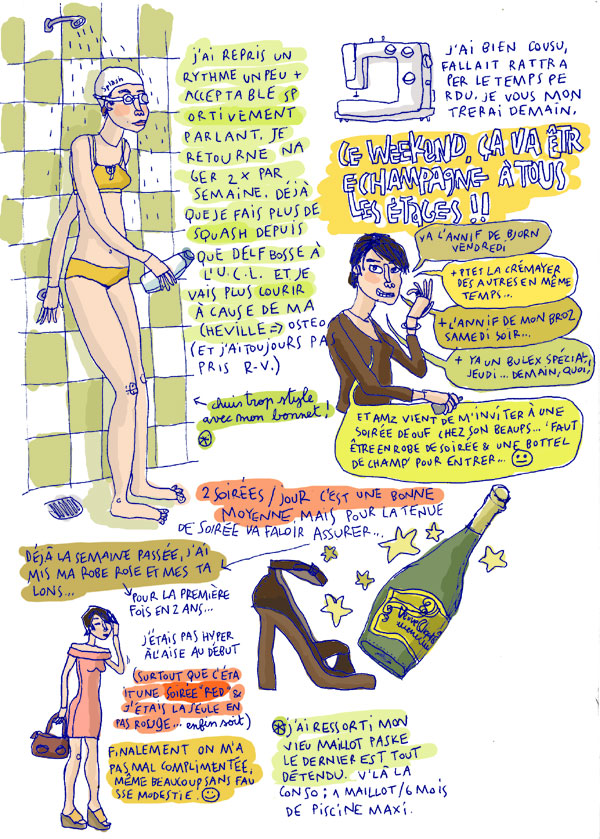 splash
j'ai repris un
rythme un peu +
acceptable sp
ortivement
parlant. je
retourne na
ger 2x par
semaine. déjà
que je fais plus de
squash depuis
que delf bosse à
l'U.C.L. et je
vais plus courir
à cause de ma
cheville => osteo
(et j'ai toujours pas
pris R-V.)
← chuis trop style
avec mon bonnet!
*
j'ai bien cousu,
fallait rattra
per le temps pe
rdu. je vous mon
trerai demain.
ce weekond, ça va êtr
e champagne à tous
les étages !!
ya l'annif de bjorn
vendredi
+ ptes la crémayer
des autres en même
temps...
+ l'annif de mon broz
samedi soir...
+ ya un bulex spécial,
jeudi... demain, quoi,
et amz vient de m'inviter à une
soirée de ouf chez son beaups... 'faut
être en robe de soirée & une bottel
de champ' pour entrer...
2 soirées/jour c'est une bonne
moyenne, mais pour la tenue
de soirée va faloir assurer...
déjà la semaine passée, j'ai
mis ma robe rose et mes ta
lons...
pour la première
fois en 2 ans...
j'étais pas hyper
à l'aise au début
(surtout que c'éta
it une soirée "red" &
j'étais la seule en
pas rouge... enfin soit)
finalement on m'a
pas mal complimentée,
même beaucoup sans fau
sse modestie.
Veuve Clicquot
* j'ai ressorti mon
vieu maillot paske
le dernier est tout
détendu. v'là la
conso; 1 maillot/6 mois
de piscine maxi.